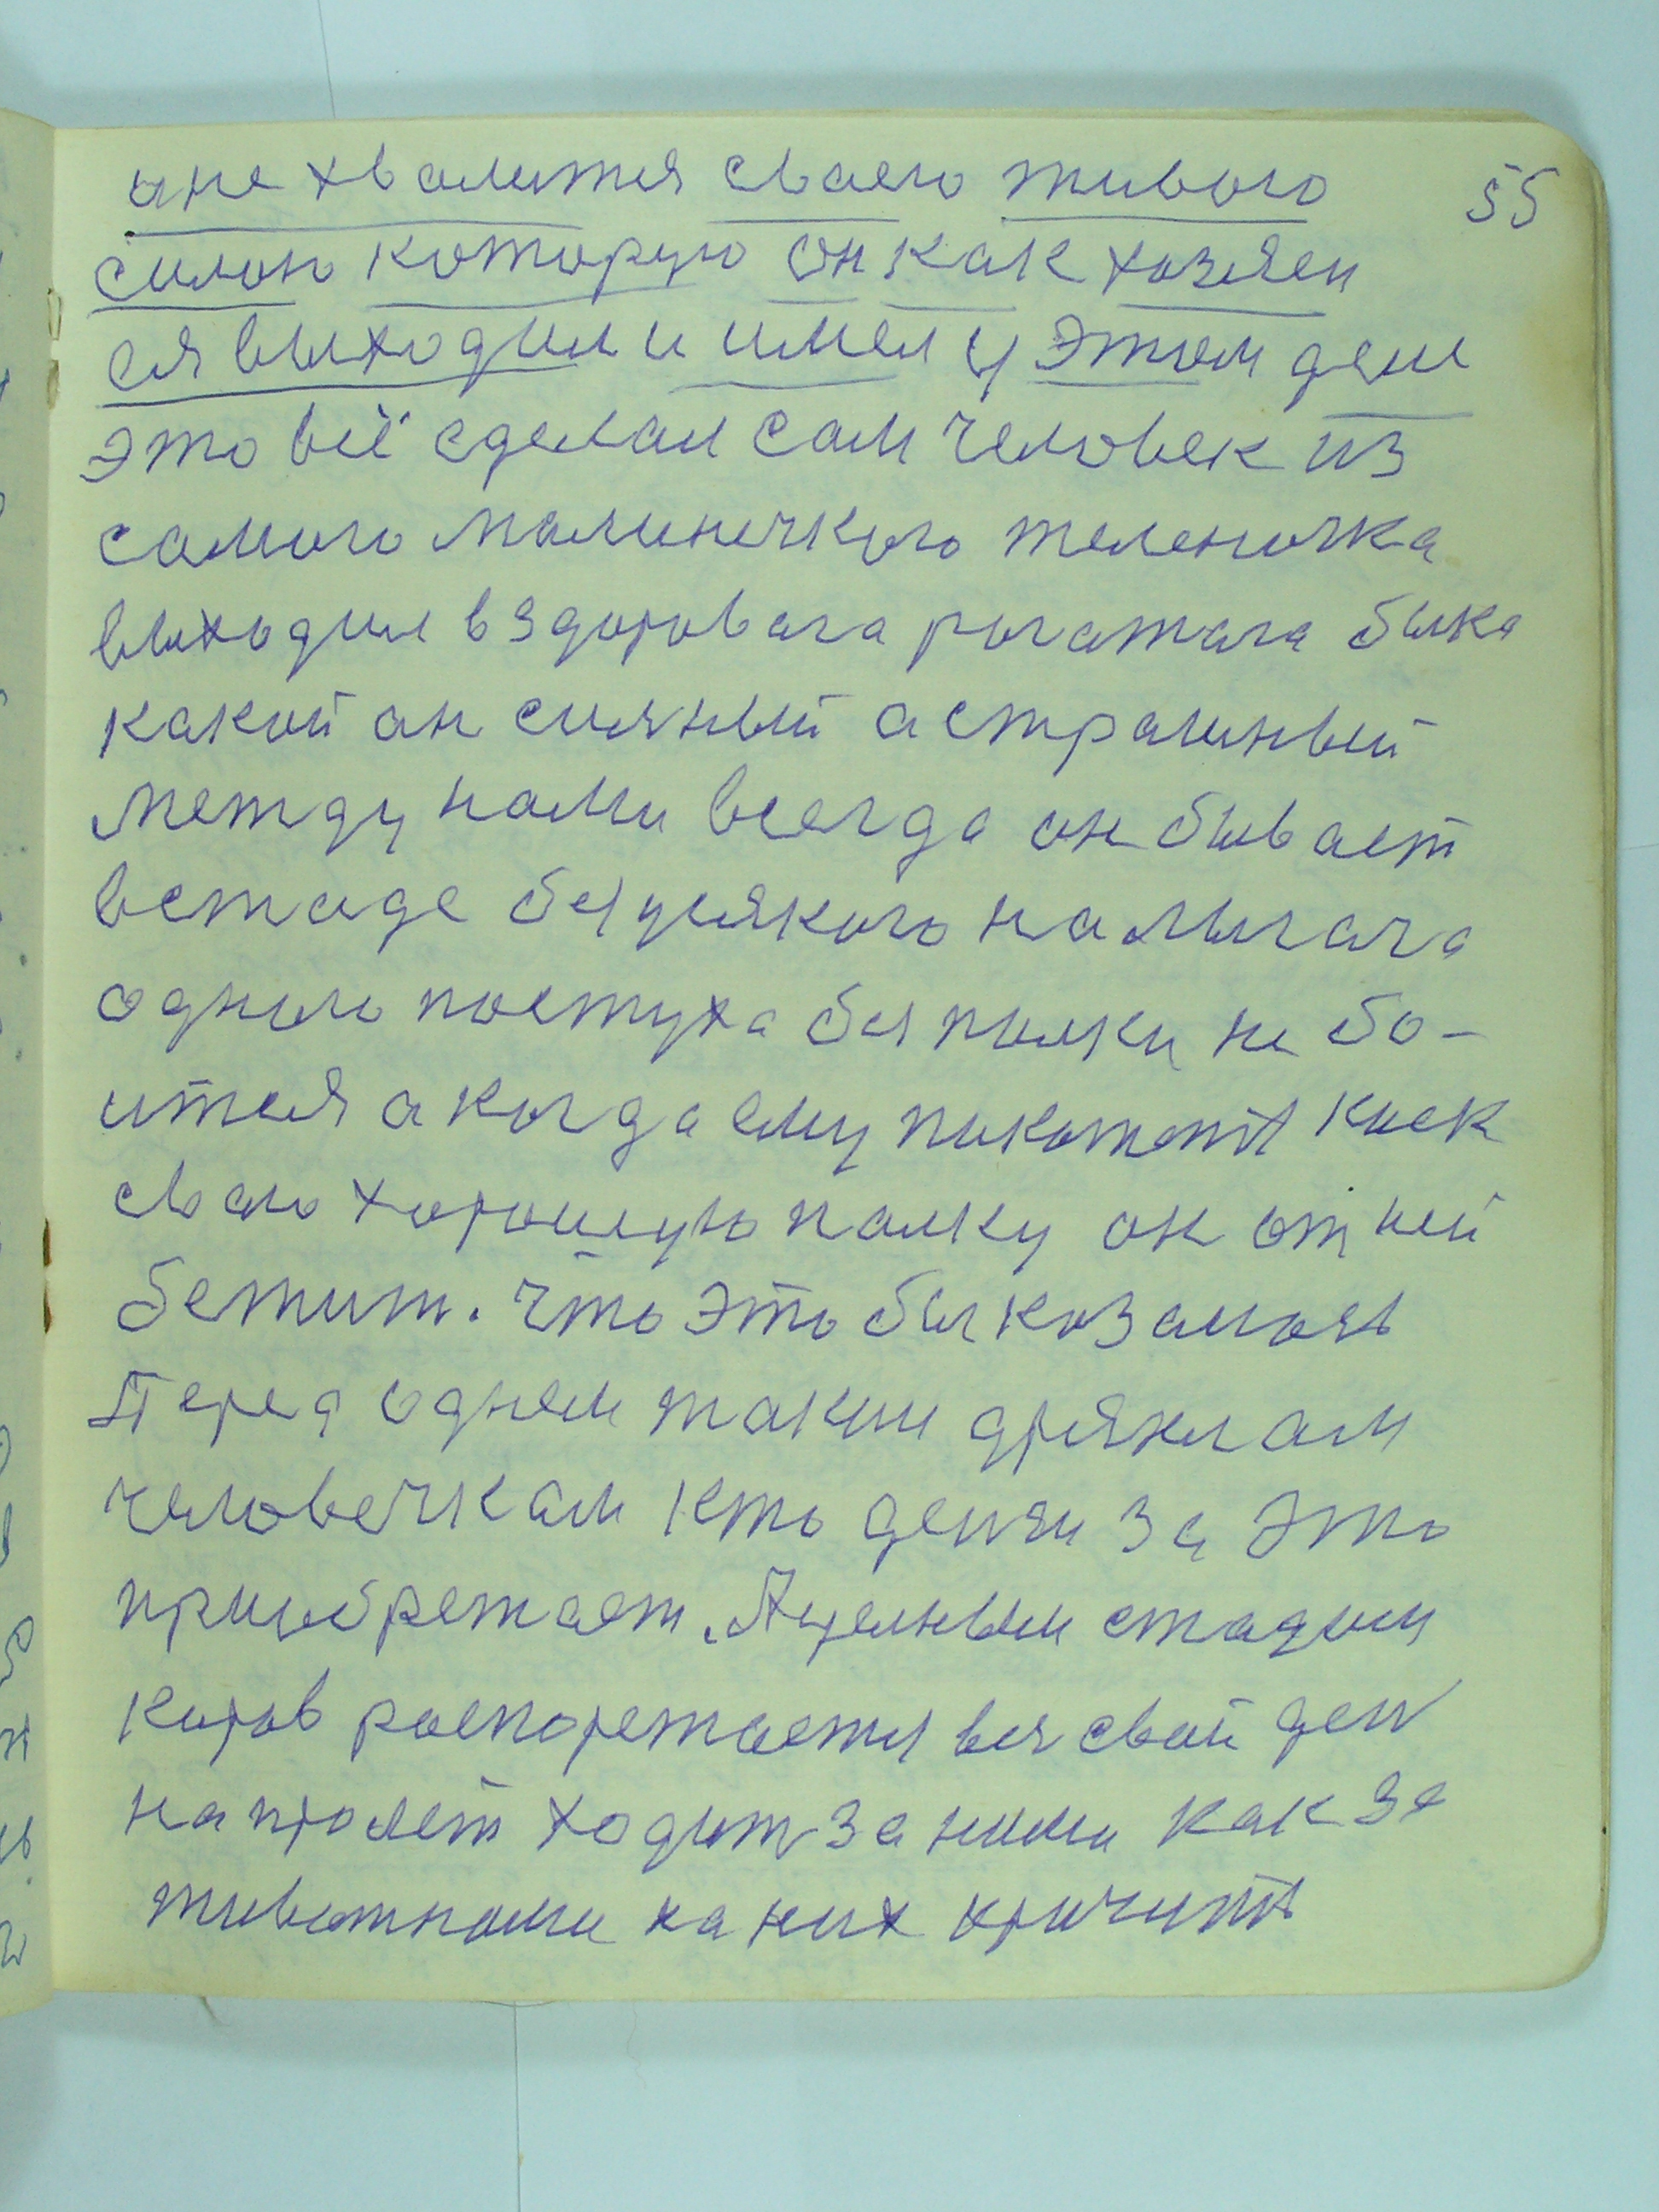 55
а не хвалится сваею живою
силою которую он как хозяен
ся выходил и имел у этом деле
это всё сделал сам человек из
самого малинечкого теленочка
выходил в здоровага рогатага быка
какой он силяный а страшный
между нами всегда он бывает
в стаде без усякого налыгача
одного постуха без палки не бо-
ится а когда ему пикажет киек
сваю хорошую палку он от ней
бежит. Что это бы казалось
Перед однем таким дряхлам
человечкам кто денги за это
приобретает. А целным стадим
коров распорежается вся свой ден
напролёт ходит за ними как за
животными на них кричить